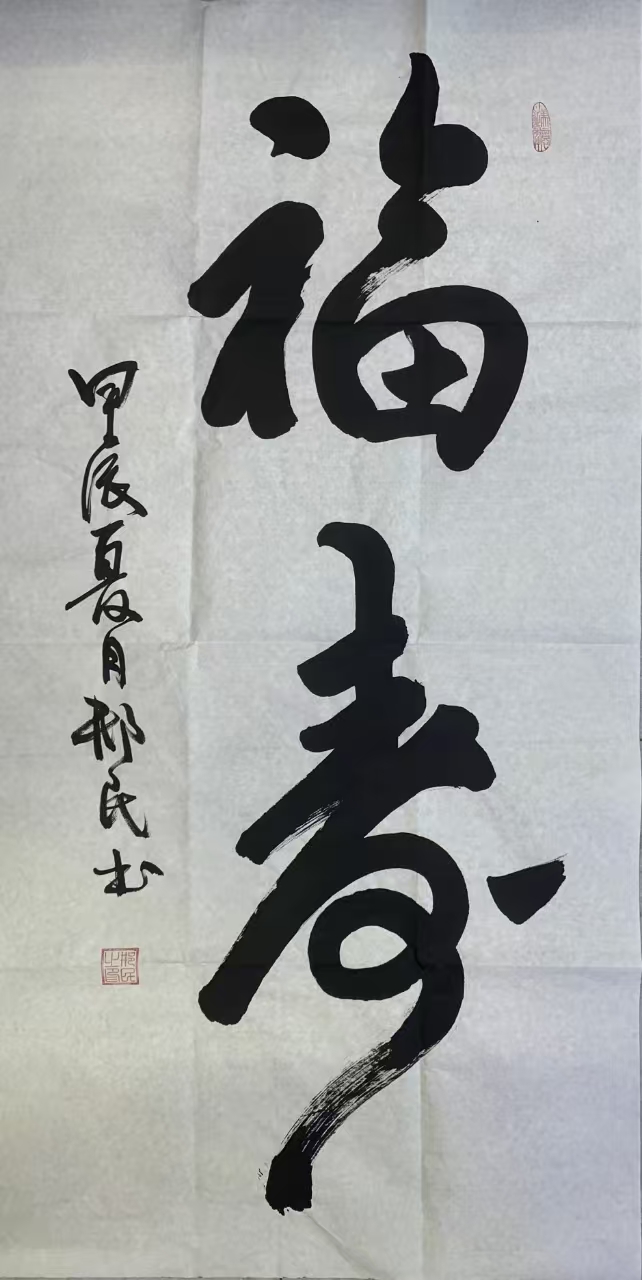 福寿
甲辰夏月邢民书